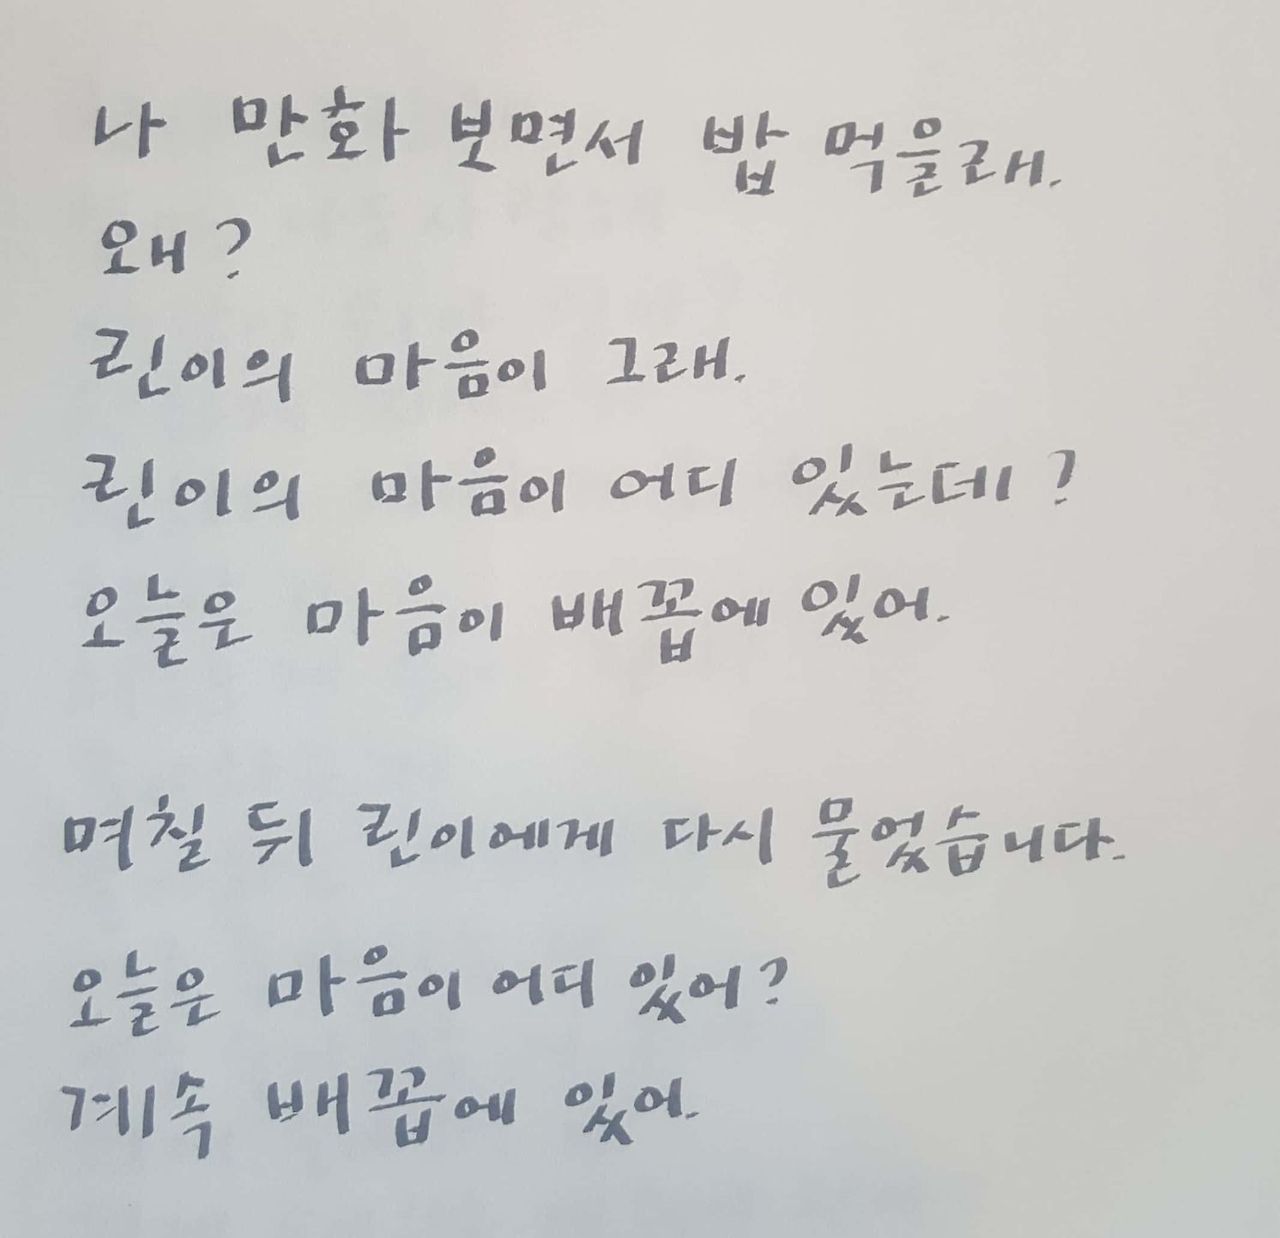 나 만화 보면서 밥 먹을래.
왜?
린이의 마음이 그래.
린이의 마음이 어디 있는데?
오늘은 마음이 배꼽에 있어.
며칠 뒤 린이에게 다시 물었습니다.
오늘은 마음이 어디 있어?
계속 배꼽에 있어.